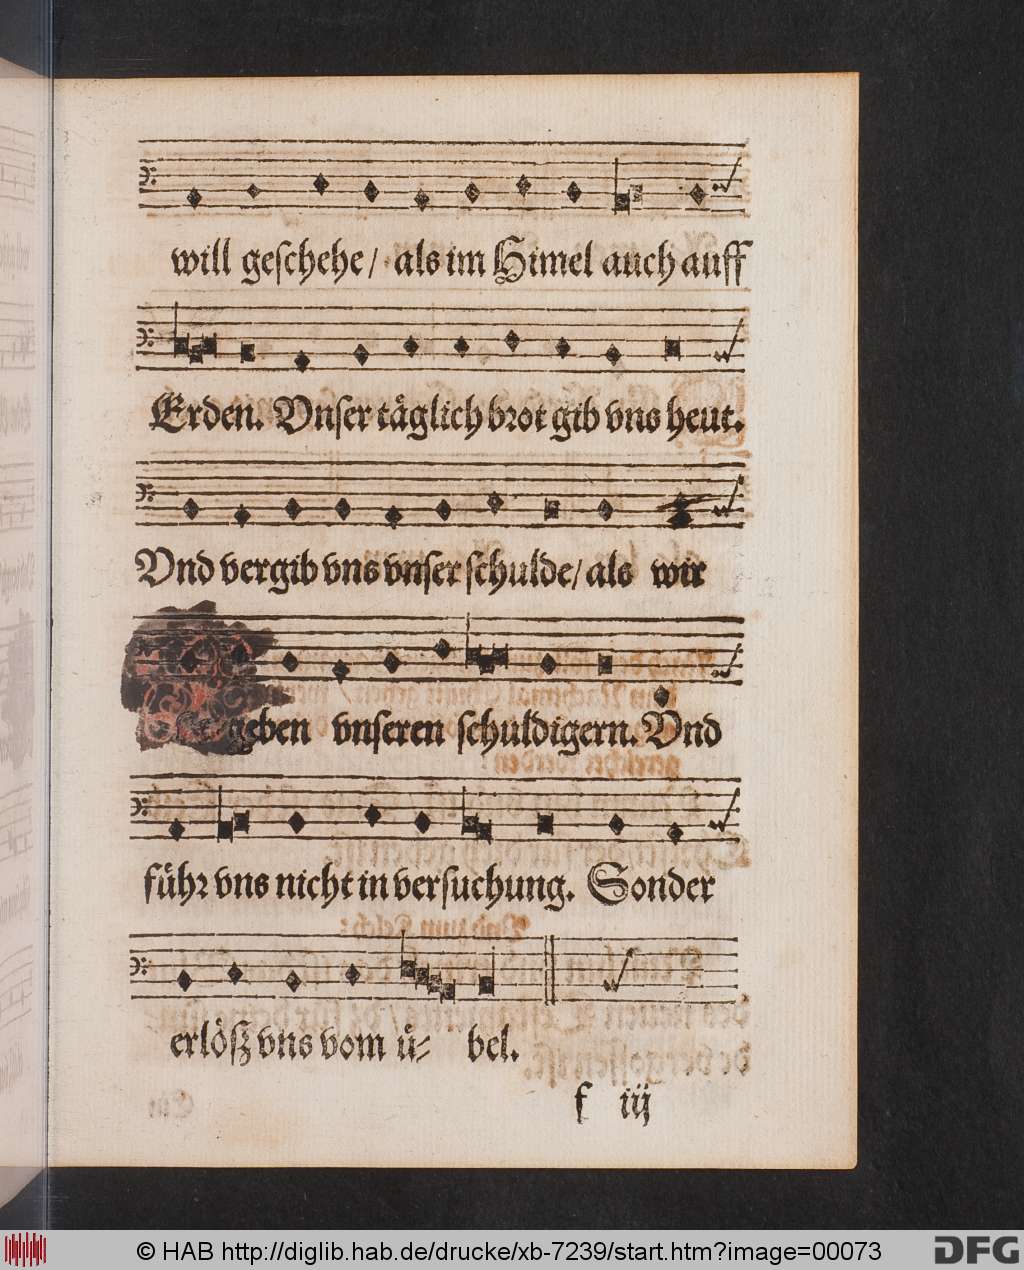 will geſchehe / als im Himel auch auff
Erden. Vnſer täglich brot gib vns heut.
Vnd vergib vns vnſer ſchulde / als wir
geben vnſeren ſchuldigern. Vnd
führ vns nicht in verſuchung. Sonder
erlöſz vns vom ü⸗ bel.
f iij
© HAB http://diglib.hab.de/drucke/xb-7239/start.htm?image=00073
DFG